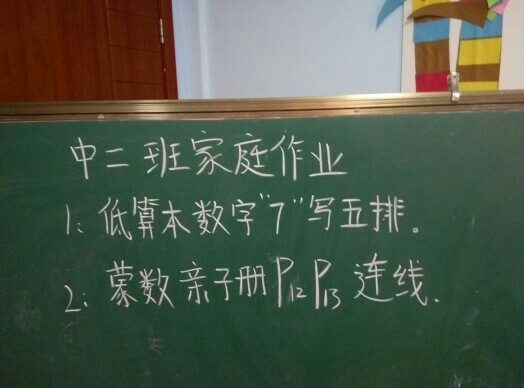 中二班家庭作业
1: 低算本数字"7"写五排。
2: 蒙数亲子册P12 P13 连线.